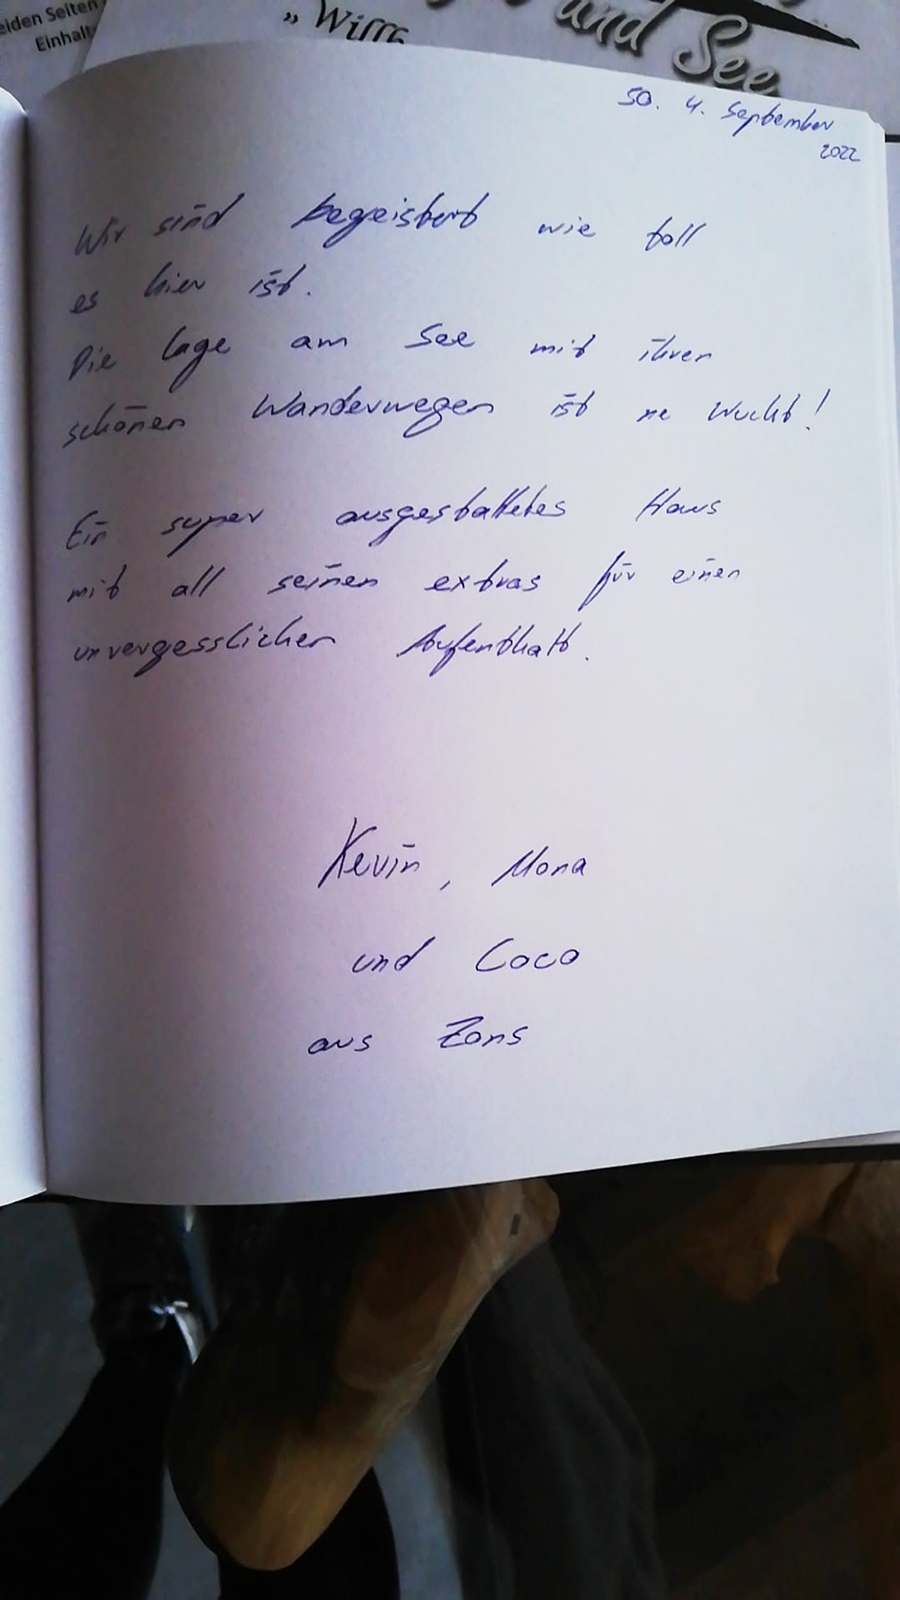 eiden Seiten
Einhalt
„Willk
und See
So. 4. September
2022
Wir sind begeistert wie toll
es hier ist.
Die Lage am See mit ihren
schönen Wanderwegen ist ne Wucht!
Ein super ausgestattetes Haus
mit all seinen extras für einen
unvergesslichen Aufenthalt.
Kevin, Mona
und Coco
aus Zons